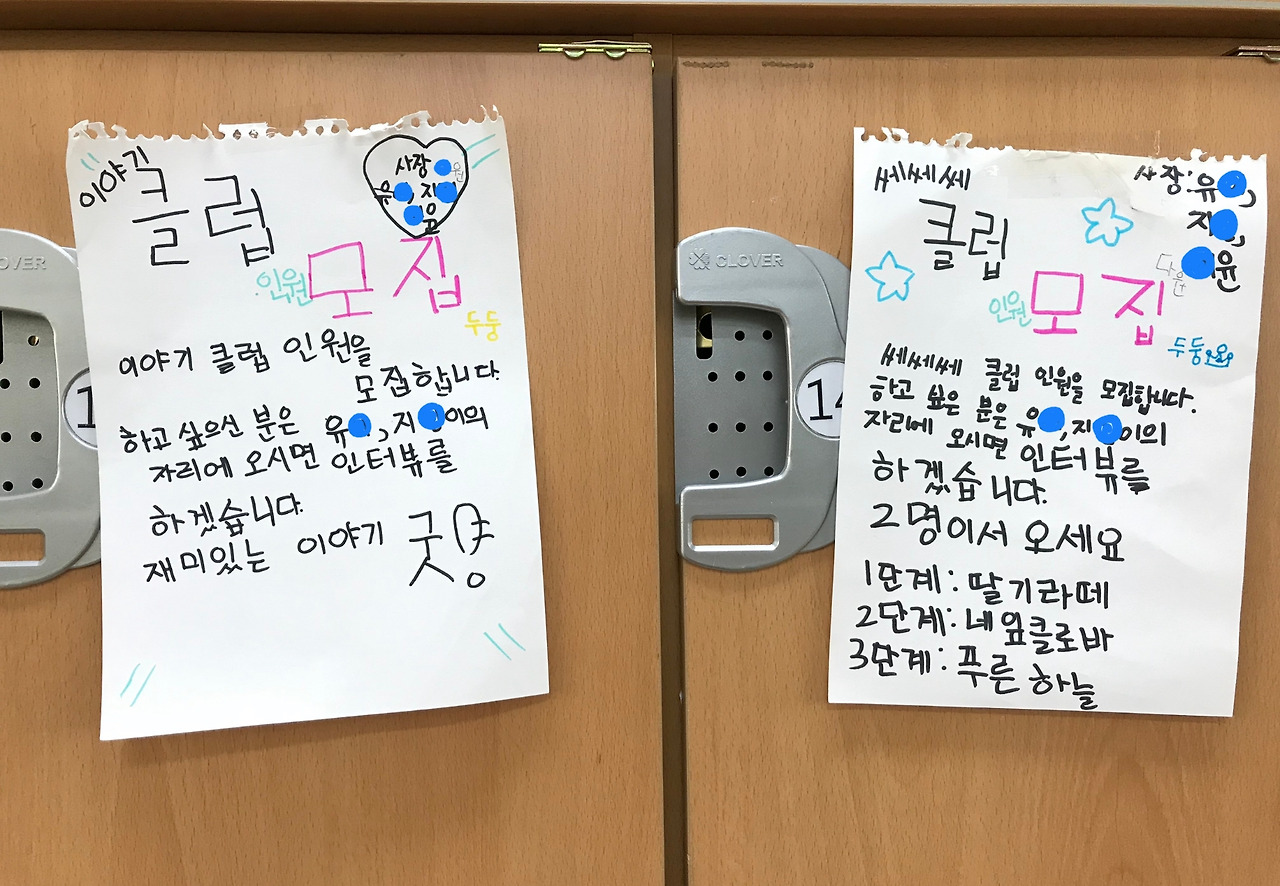 이야기
클럽
사장
유, 지
인원 모집
두둥
이야기 클럽 인원을
모집합니다.
하고 싶으신 분은 유, 지이의
자리에 오시면 인터뷰를
하겠습니다.
재미있는 이야기 굿
CLOVER
쎄쎄쎄
클럽
사장: 유,
지,
윤
다원
인원 모집
두둥
쎄쎄쎄 클럽 인원을 모집합니다.
하고 싶은 분은 유, 지이의
자리에 오시면 인터뷰를
하겠습니다.
2명이서 오세요
1단계: 딸기라떼
2단계: 네잎클로바
3단계: 푸른 하늘
CLOVER
14